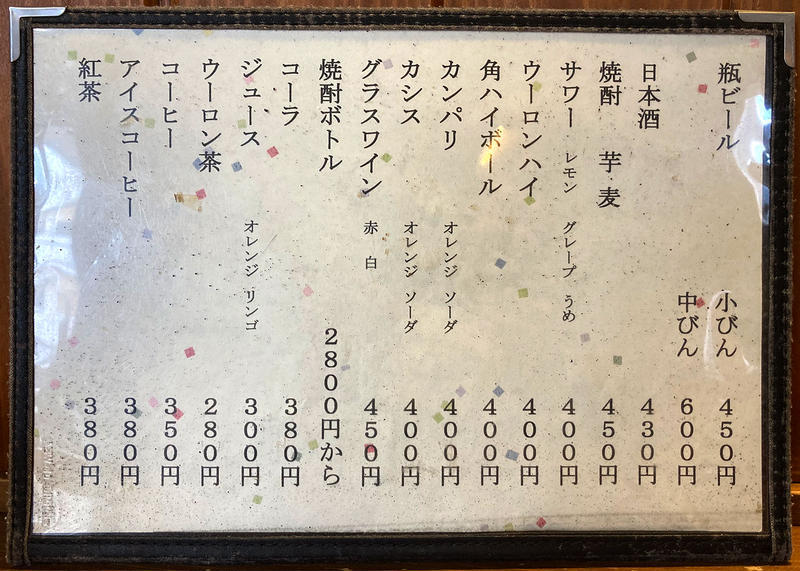 瓶ビール 小びん 450円
中びん 600円
日本酒 430円
焼酎 芋 麦 450円
サワー レモン グレープ うめ 400円
ウーロンハイ 400円
角ハイボール 400円
カンパリ オレンジ ソーダ 400円
カシス オレンジ ソーダ 400円
グラスワイン 赤 白 450円
焼酎ボトル 2800円から
コーラ 380円
ジュース オレンジ リンゴ 300円
ウーロン茶 280円
コーヒー 350円
アイスコーヒー 380円
紅茶 380円